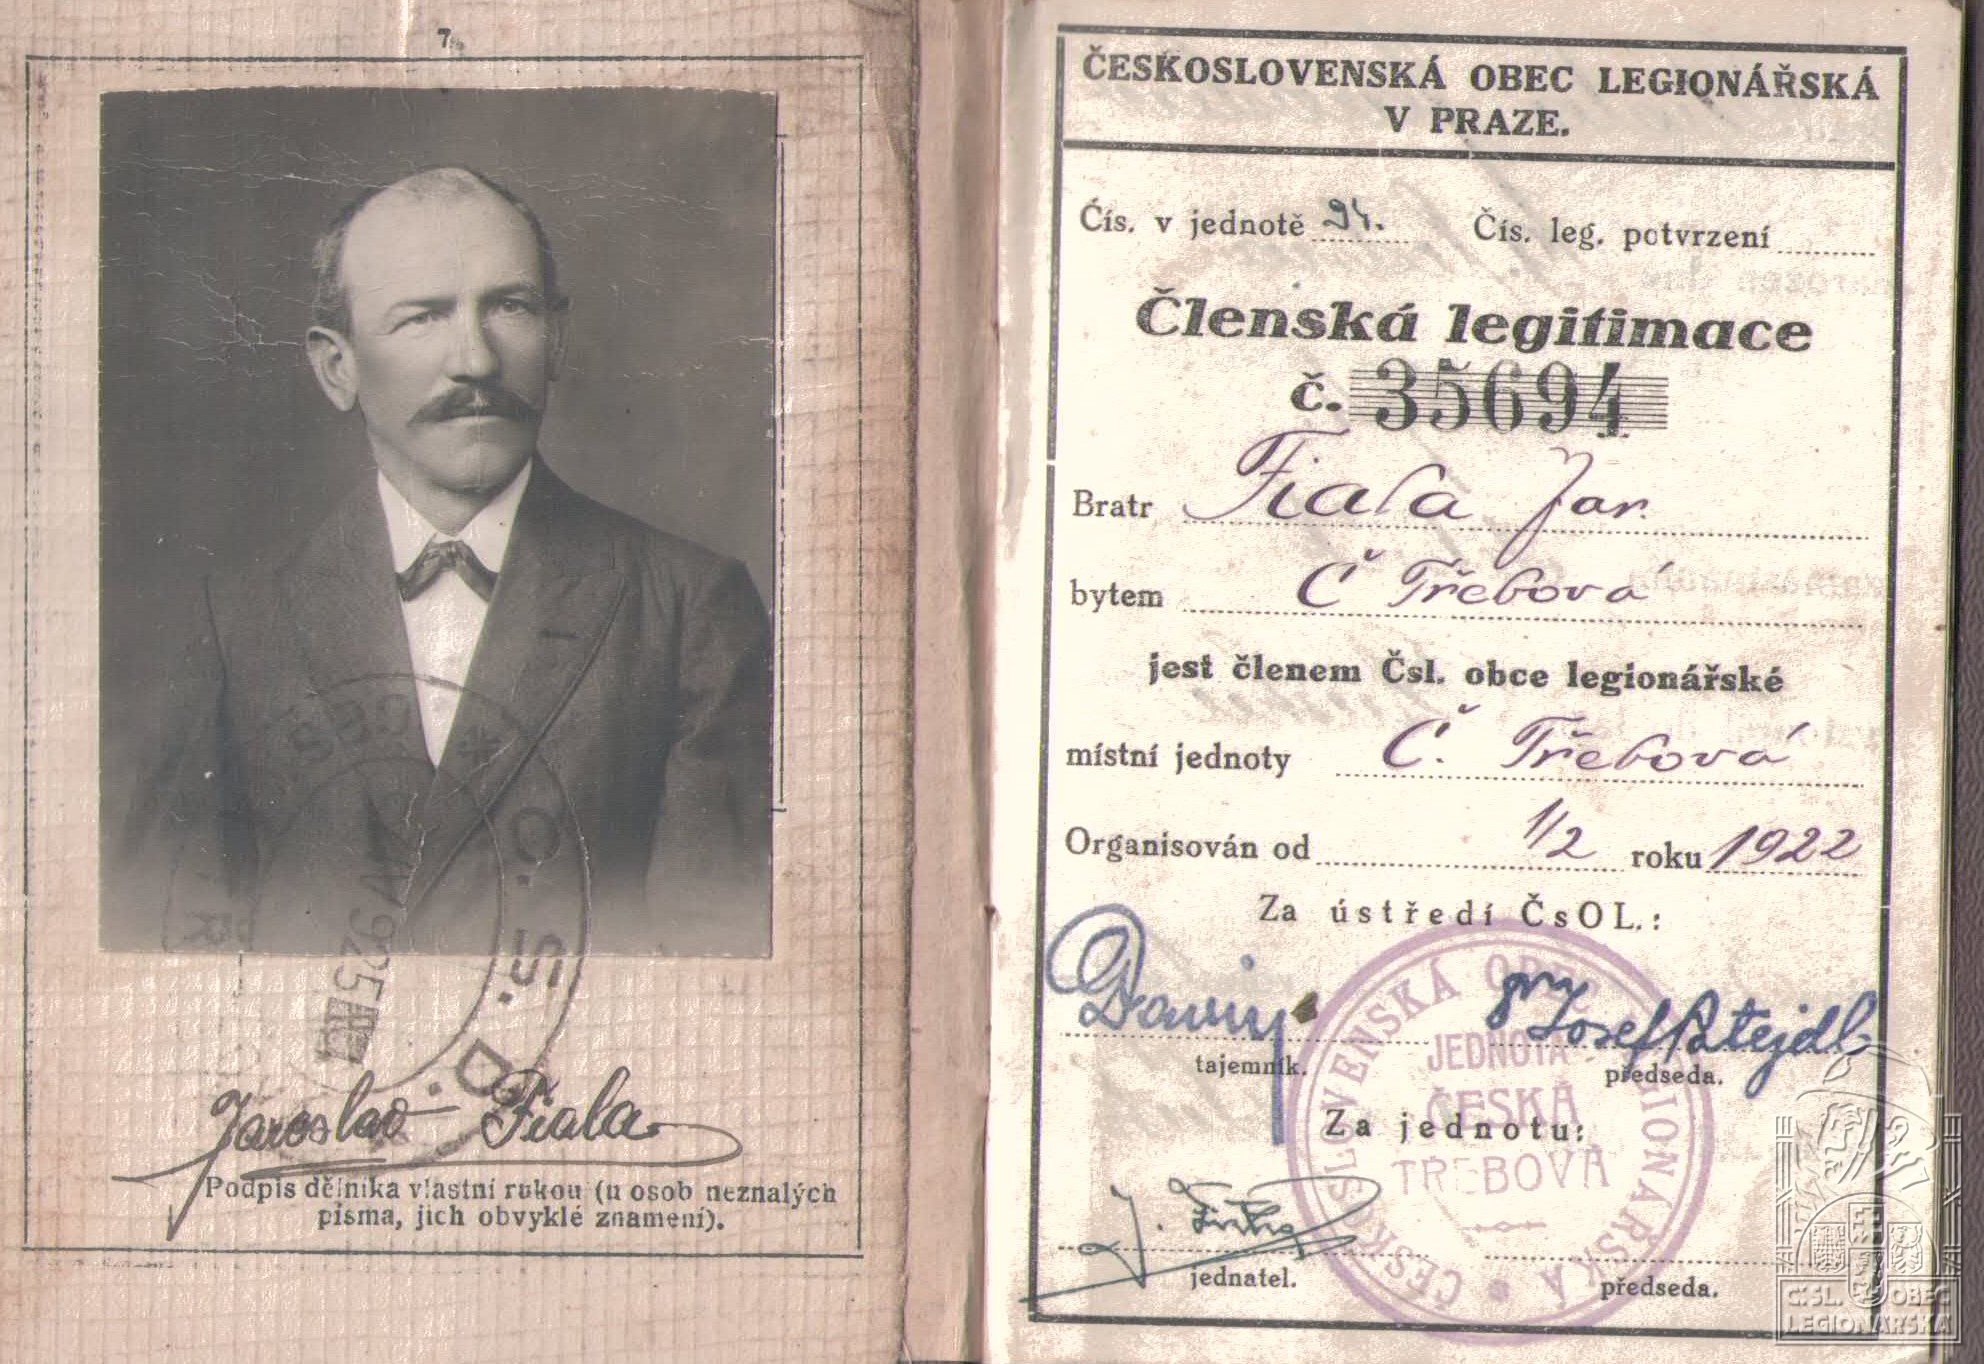 7
Jaroslav Fiala
Podpis dělníka vlastní rukou (u osob neznalých
písma, jich obvyklé znamení).
ČESKOSLOVENSKÁ OBEC LEGIONÁŘSKÁ
V PRAZE.
Čís. v jednotě 94. Čís. leg. potvrzení
Členská legitimace
č. 35694
Bratr Fiala Jar.
bytem Č Třebová
jest členem Čsl. obce legionářské
místní jednoty Č. Třebová
Organisován od 1/2 roku 1922
Za ústředí ČsOL.:
Josef Patejdl
tajemník. předseda.
Za jednotu:
J.
jednatel. předseda.
ČESKOSLOVENSKÁ OBEC LEGIONÁŘSKÁ
JEDNOTA
ČESKÁ
TŘEBOVÁ
O. S. D.
1925
Č.SL. OBEC
LEGIONÁŘSKÁ